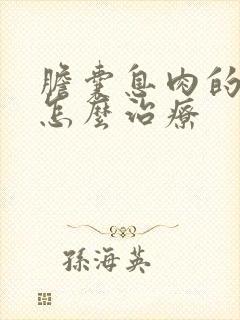 膽囊息肉的
怎麼治療
孫海英